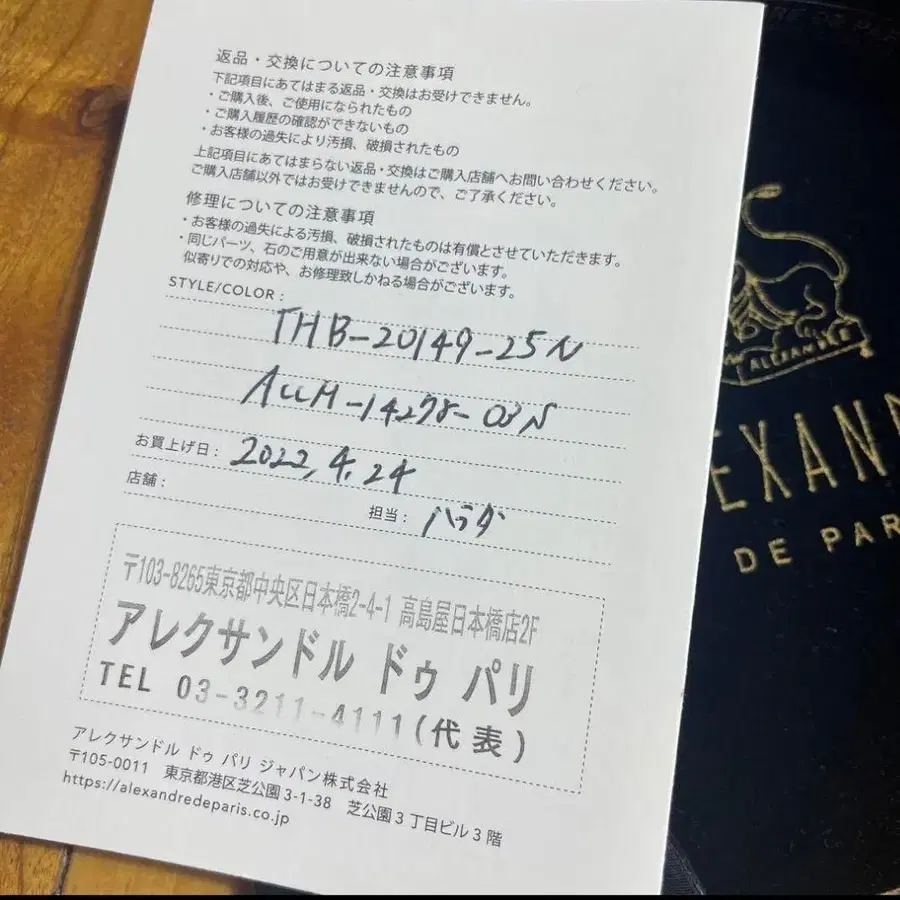 返品・交換についての注意事項
下記項目にあてはまる返品・交換はお受けできません。
・ご購入後、ご使用になられたもの
・ご購入履歴の確認ができないもの
・お客様の過失により汚損、破損されたもの
上記項目にあてはまらない返品・交換はご購入店舗へお問い合わせください。
ご購入店舗以外ではお受けできませんので、ご了承ください。
修理についての注意事項
・お客様の過失による汚損、破損されたものは有償とさせていただきます。
・同じパーツ、石のご用意が出来ない場合がございます。
似寄りでの対応や、お修理致しかねる場合がございます。
STYLE/COLOR:
THB-20149-25N
-14278-03N
お買上げ日: 2022,4,24
店舗:
担当: ハラダ
〒103-8265東京都中央区日本橋2-4-1 高島屋日本橋店2F
アレクサンドル ドゥ パリ
TEL 03-3211-4111(代表)
アレクサンドル ドゥ パリ ジャパン株式会社
〒105-0011 東京都港区芝公園3-1-38 芝公園3丁目ビル3階
https://alexandredeparis.co.jp
ALEXANDRE
EXAND
DE PAR